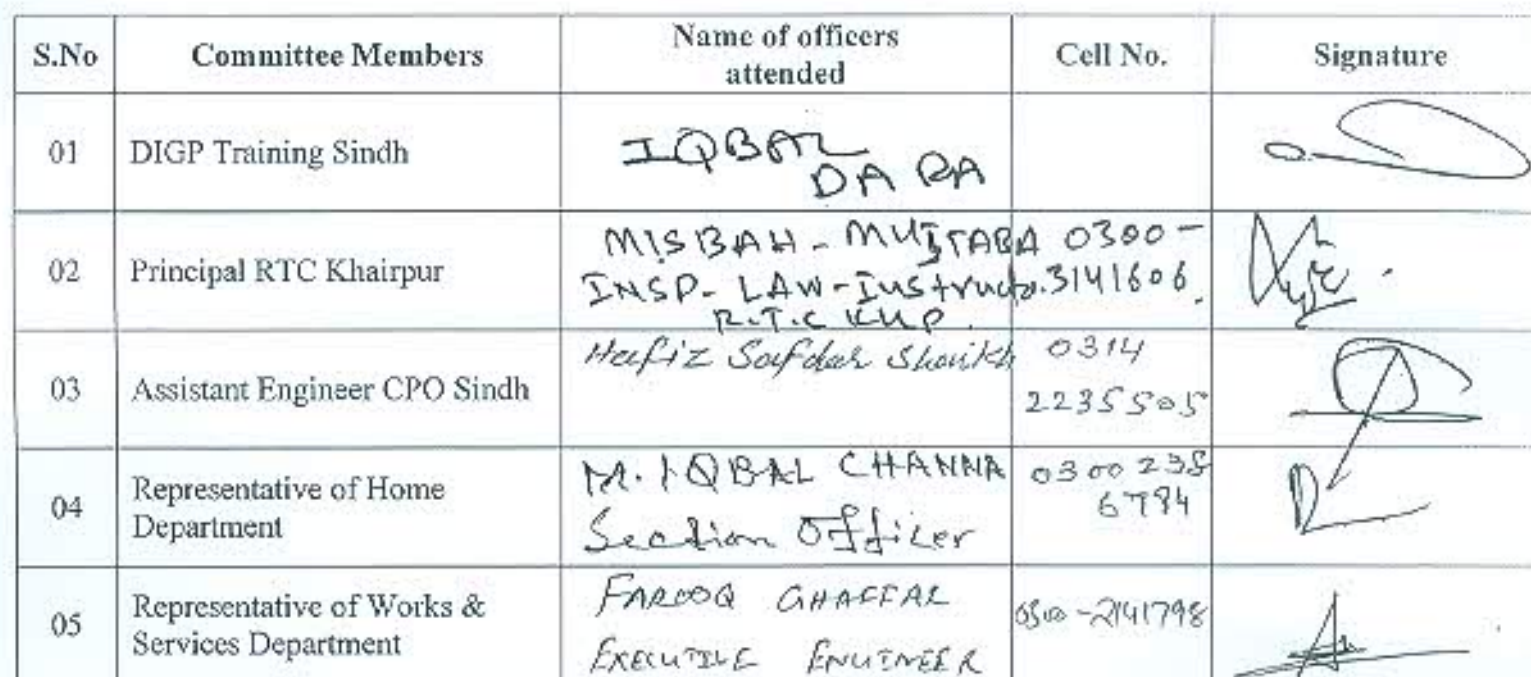 S.No Committee Members Name of officers attended Cell No. Signature
01 DIGP Training Sindh IQBAL
DARA
02 Principal RTC Khairpur MISBAH - MUJTABA 0300-
INSP- LAW-Instructo. 3141606.
R.T.C KHP.
03 Assistant Engineer CPO Sindh Hafiz Safdar Shaikh 0314
2235505
04 Representative of Home
Department M. IQBAL CHANNA 0300 238
Section Officer 6784
05 Representative of Works &
Services Department FAROOQ GHAFFAR 0300-2141798
EXECUTIVE ENGINEER